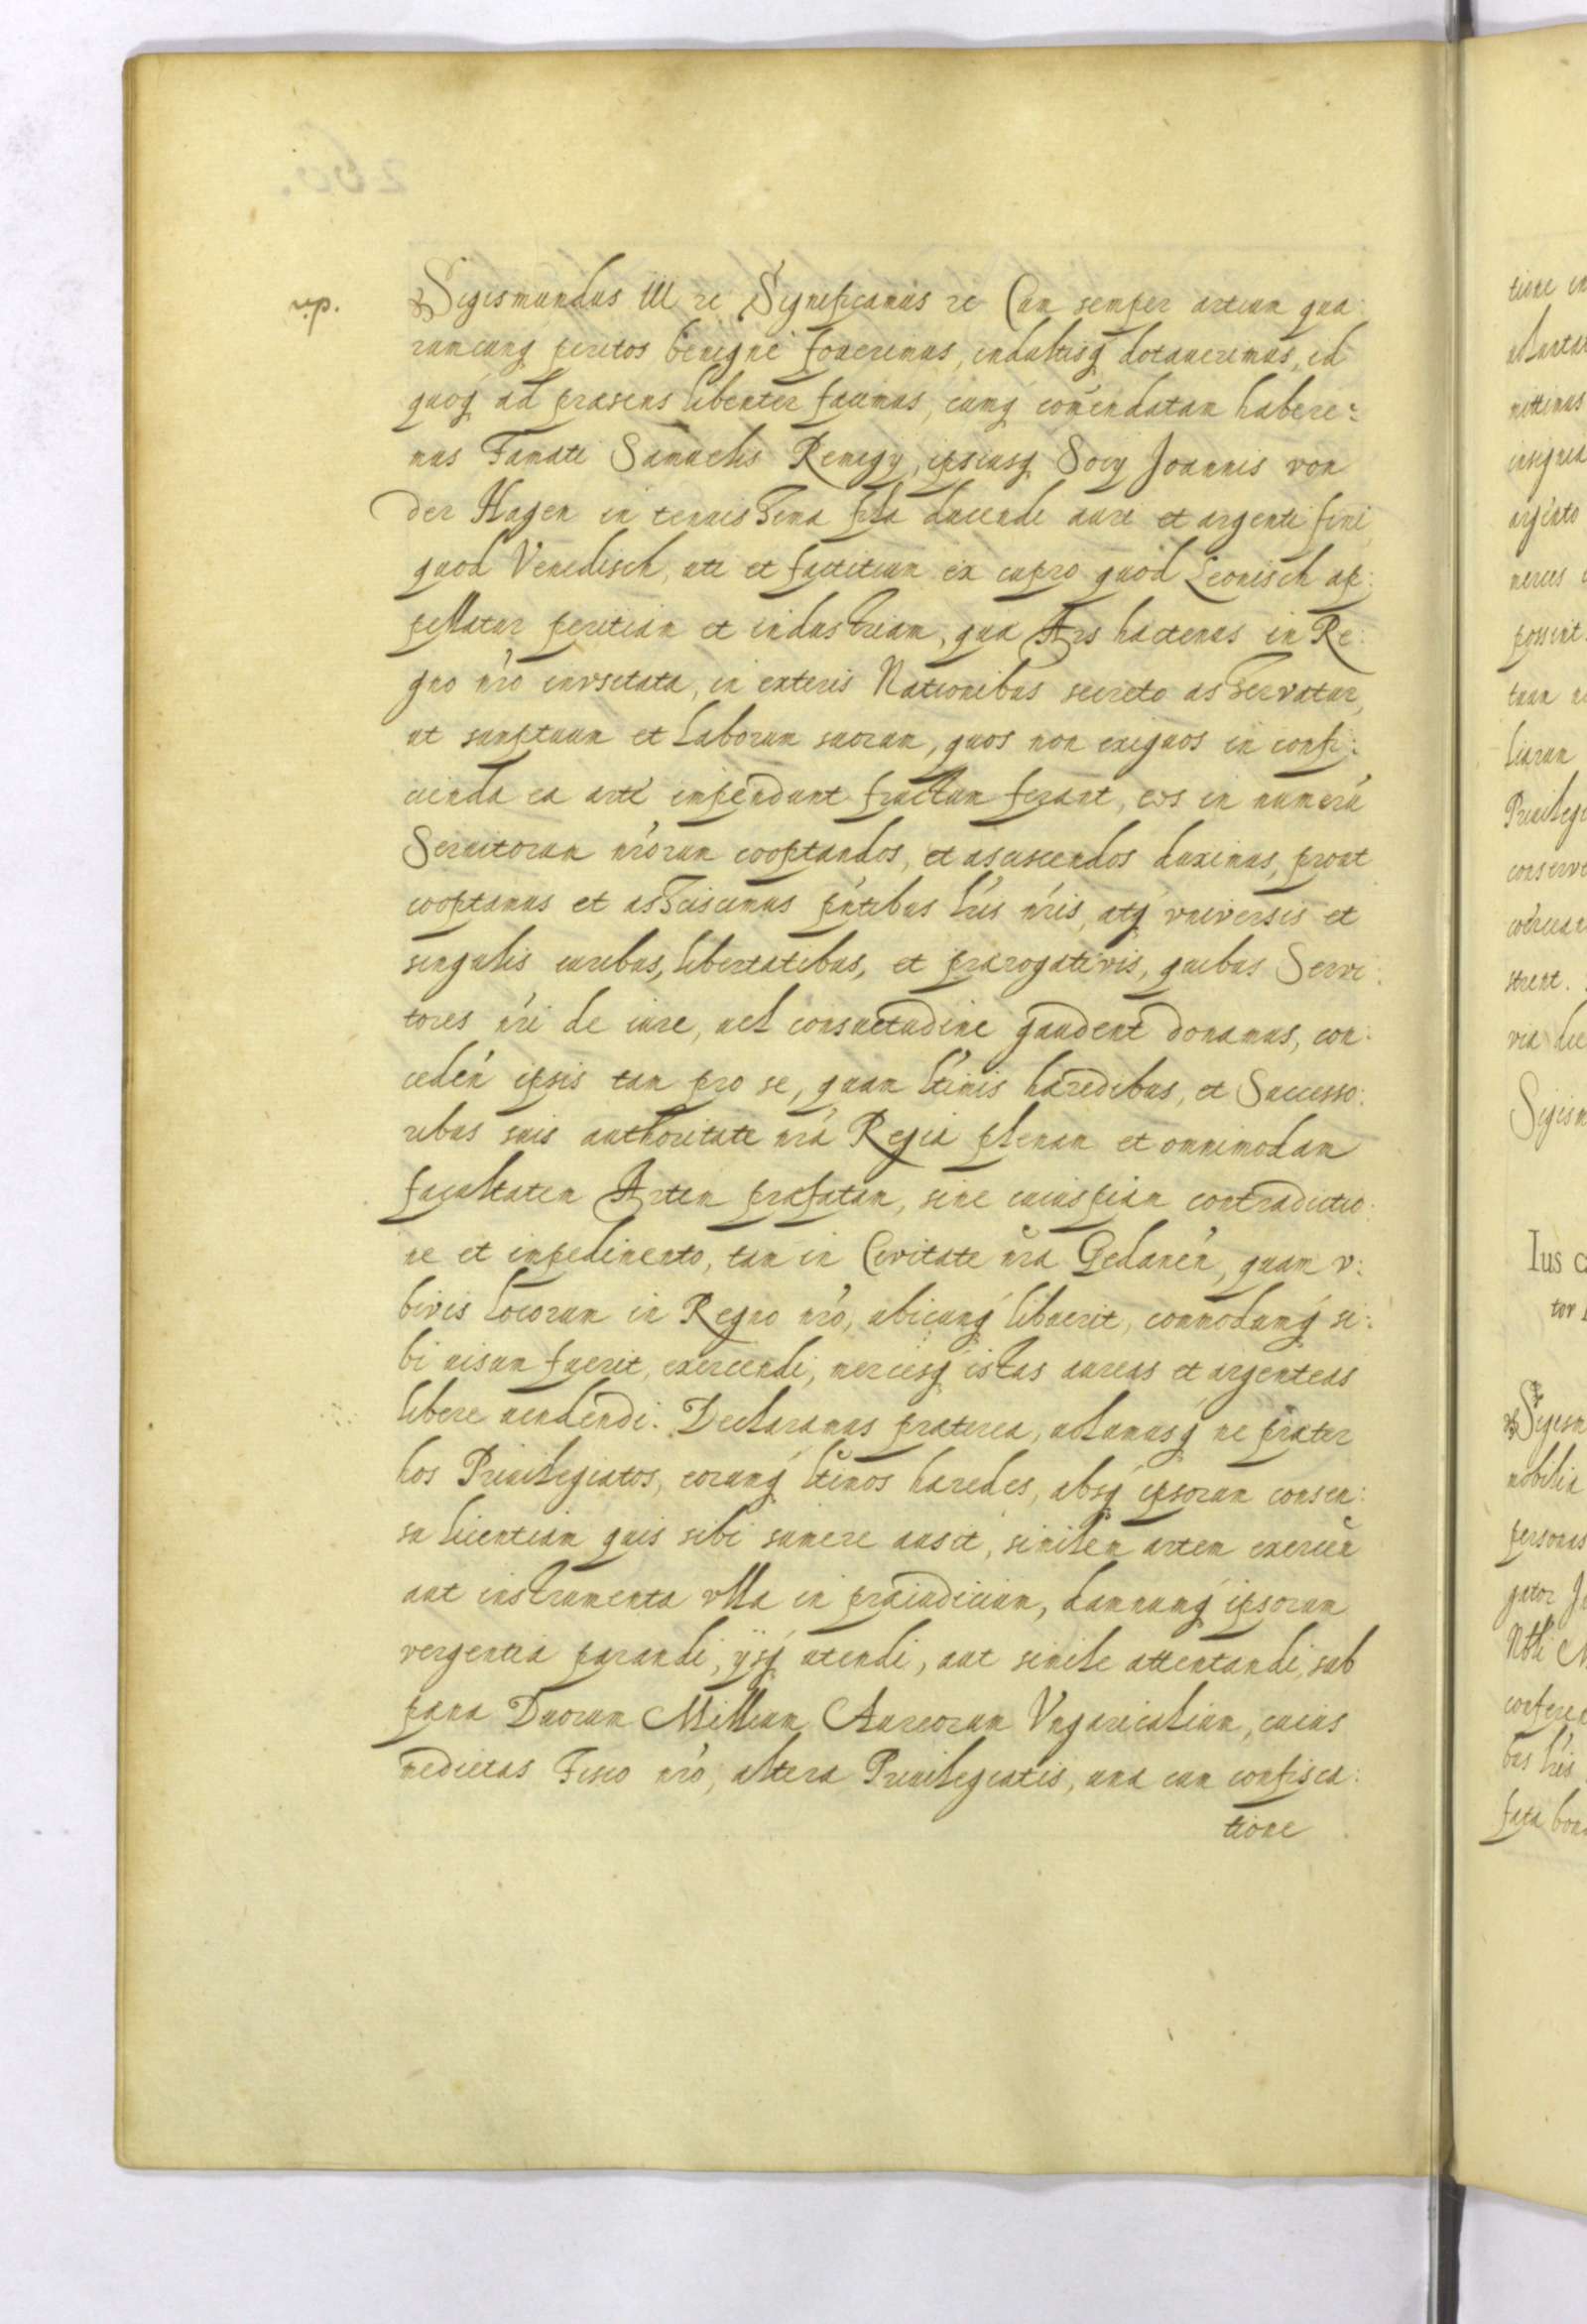 r.p.
Sigismundus III etc Significamus etc Cum semper artium qua:
rumcunq peritos benigné foverimus, indultisq dotaverimus, id
quoq ad præsens libenter facimus, cumq comendatam habere:
mus Famati Samuelis Remigy, ipsiusq Socy Joannis von
der Hagen in tenuissima fila ducendi auri et argenti fini
quod Venedisch, uti et factitium ex cupro quod Leonisch ap:
pellatur peritiam et industriam, qua Ars hactenus in Re:
gno nro invsitata, in exteris Nationibus secreto asservatur,
ut sumptuum et laborum suorum, quos non exiguos in confi:
cienda ea arte impendunt fructum ferant, eos in numerū
Servitorum nrorum cooptandos, et asciscendos duximus, prout
cooptamus et assciscimus pntibus lris nris, atq vniversis et
singulis iuribus, libertatibus, et prærogativis, quibus Servi:
tores nri de iure, vel consuetudine gaudent donamus, con:
ceden ipsis tam pro se, quam ltimis hæredibus, et Successo:
ribus suis authoritate nra Regia plenam et omnimodam
facultatem Artem præfatam, sine cuiuspiam contradictio:
ne et impedimento, tam in Civitate nra Gedanen, quam v:
bivis locorum in Regno nro, ubicunq libuerit, commodumq si:
bi visum fuerit, exercendi, mercesq istas aureas et argenteas
libere vendendi. Declaramus præterea, volumusq ne præter
hos Privilegiatos, eorumq ltimos hæredes, absq ipsorum consen:
su licentiam quis sibi sumere ausit, similem artem exercen
aut instrumenta vlla in præiudicium, damnumq ipsorum
vergentia parandi, ysq utendi, aut simile attentandi, sub
pæna Duorum Millium Aureorum Vngaricalium, cuius
medietas Fisco nro, altera Privilegiatis, una cum confisca:
tione